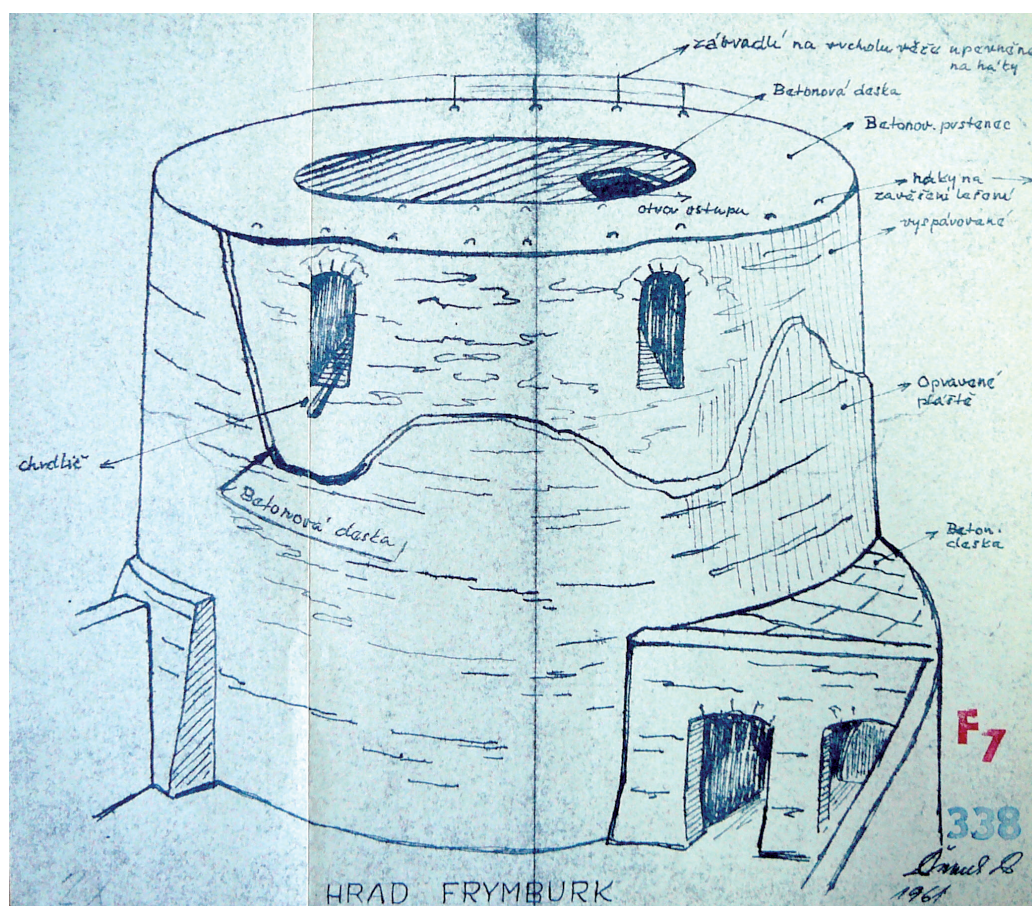 zábradlí na vrcholu věže upevněno
na háky
Betonová deska
Betonov. prstenec
háky na
zavěšení lešení
otvor výstupu
vyspárované
Opravené
pláště
chrdlič
Betonová deska
Beton.
deska
F7
338
1961
HRAD FRYMBURK